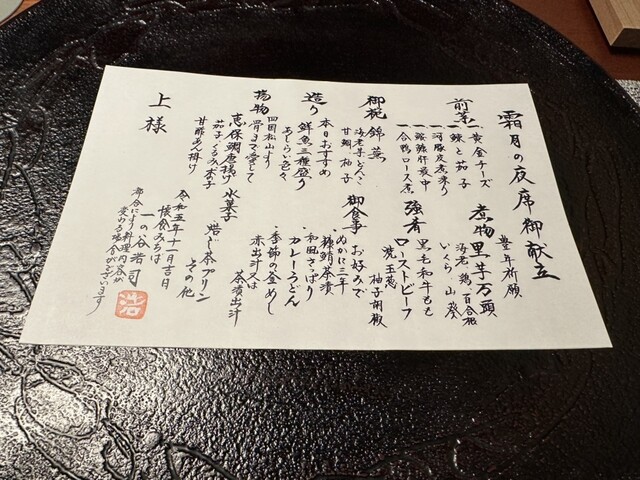 霜月の夜席御献立
豊年祈願
前菜
一 黄金チーズ
一 鰊と茄子
一 河豚皮煮凍り
一 鮟鱇肝最中
一 合鴨ロース煮
御椀
錦蕪
海老芋
甘鯛 柚子
造り
本日おすすめ
鮮魚三種盛り
あしらい色々
揚物
四国松山より
骨まで愛して
恵保鯛唐揚げ
茄子 杏子
甘酢あん掛け
煮物
里芋万頭
海老 鶏 百合根
いくら 山葵
強肴
黒毛和牛もも
ローストビーフ
洗玉葱
柚子胡椒
御食事
お好みで
ぬかに三年
鯖茶漬
和風さっぱり
カレーうどん
・季節の釜めし
赤出汁
茶漬出汁
水菓子
焙じ茶プリン
その他
令和五年十一月吉日
一の谷浩司
都合により料理内容が
変わる場合がございます
上様